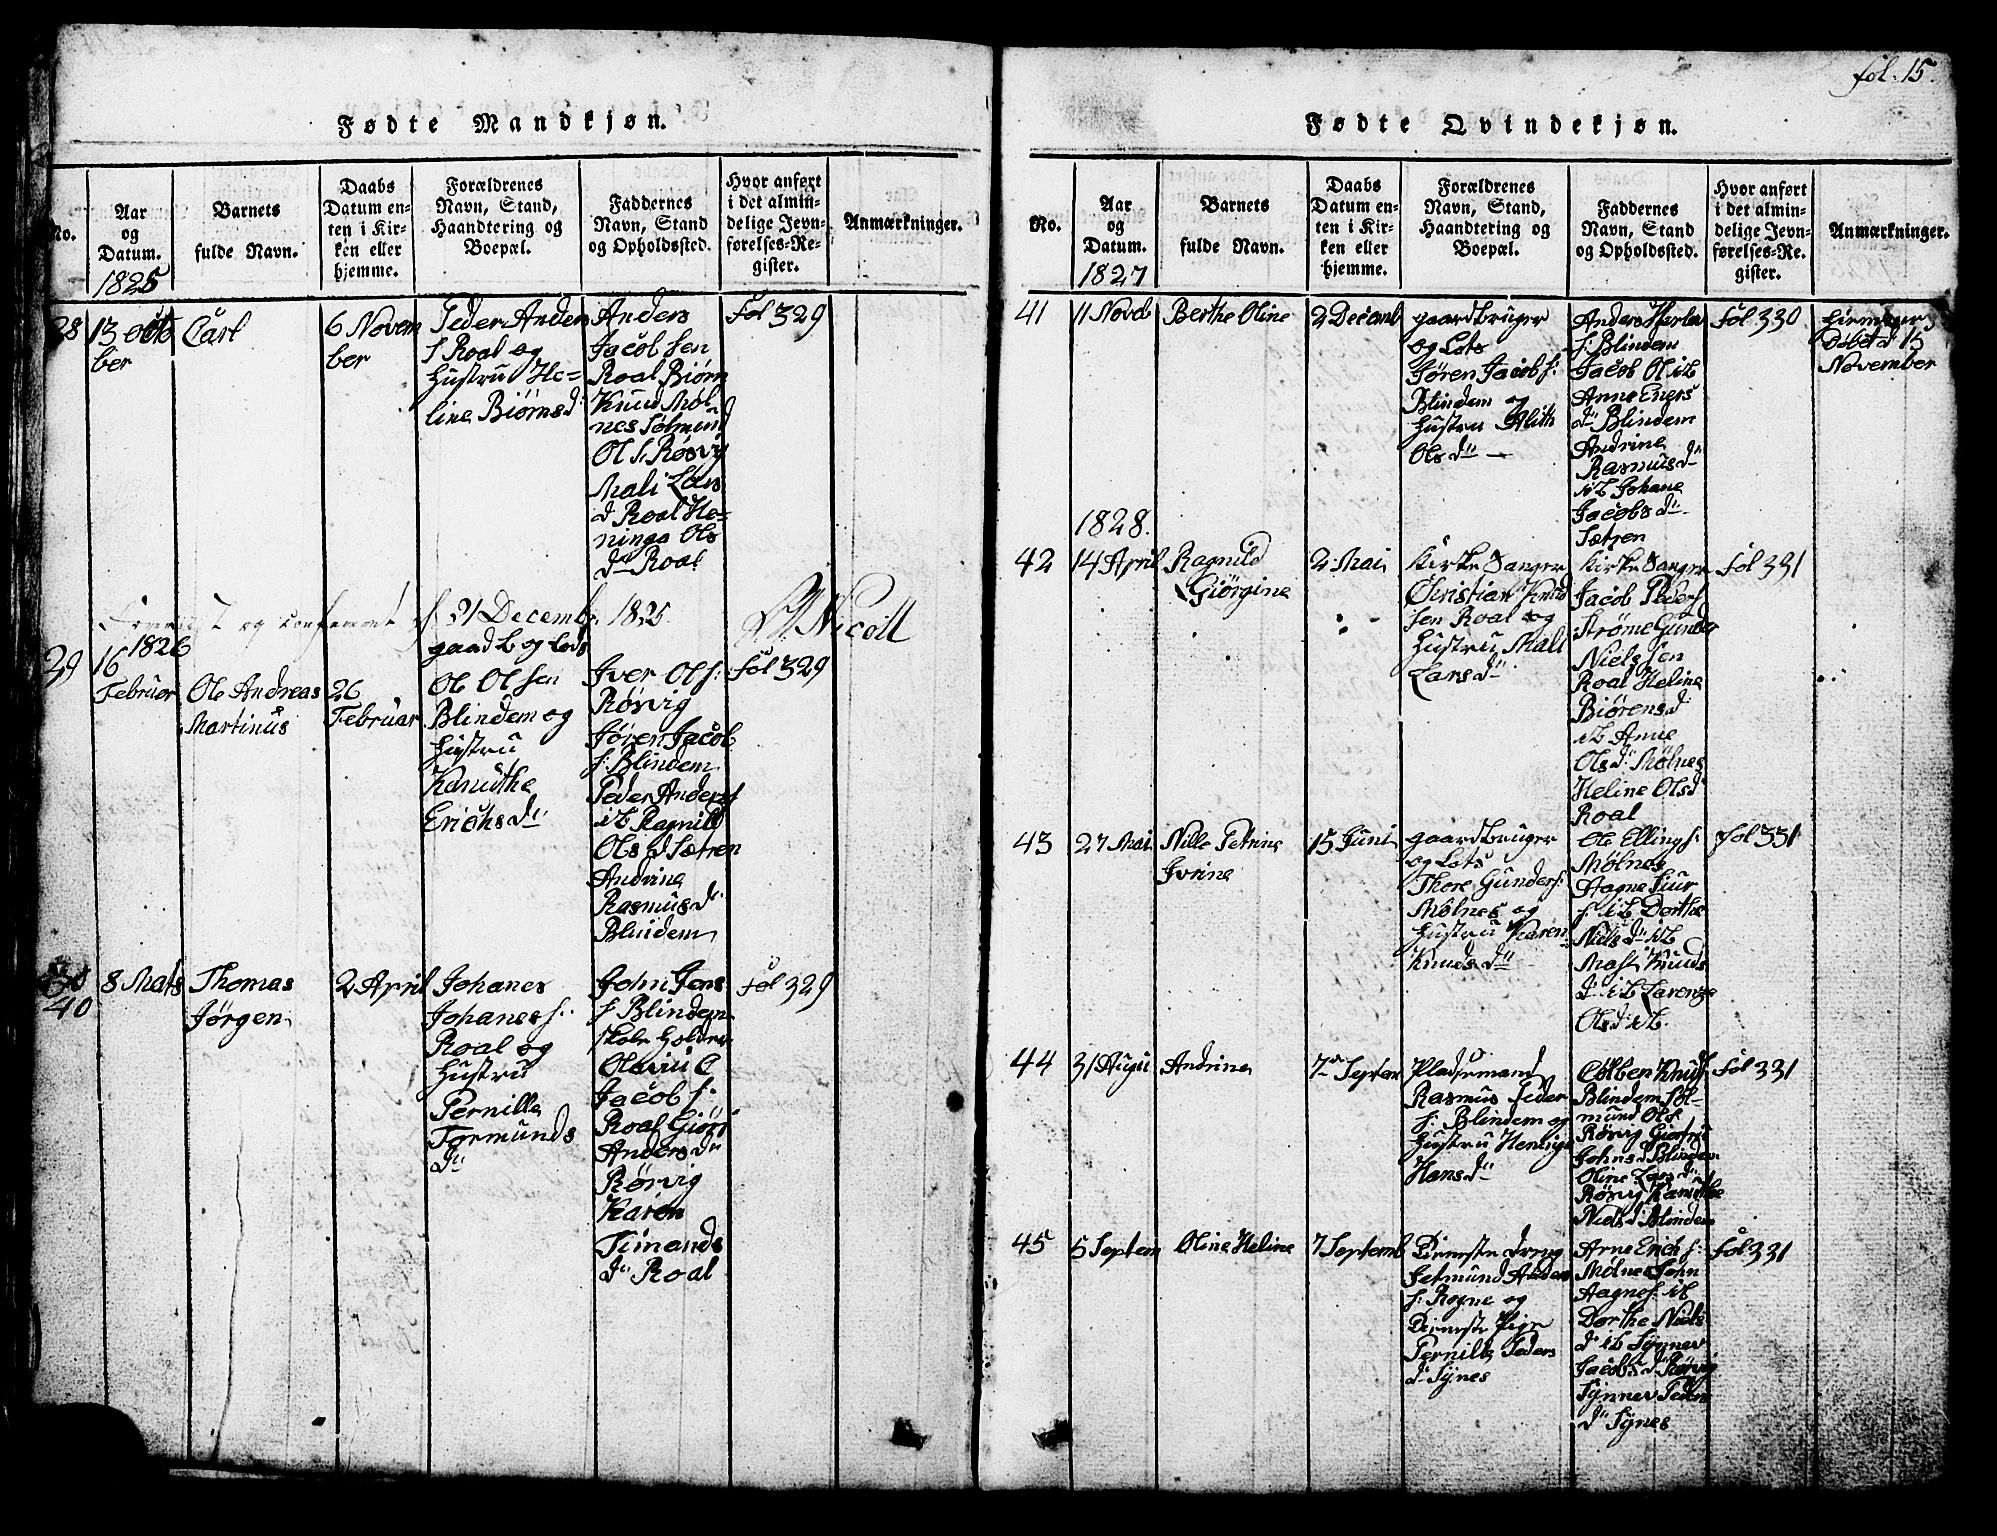 fol. 15.
Fødte Mandkjøn.
No.
Aar
og
Datum.
1825
Barnets
fulde Navn.
Daabs
Datum en-
ten i Kir-
ken eller
hjemme.
Forældrenes
Navn, Stand,
Haandtering og
Boepæl.
Faddernes
Navn, Stand
og Opholdssted.
Hvor anført
i det almin-
delige Jevn-
førelses-Re-
gister.
Anmærkninger.
28
13 octo
ber
Carl
6 Novem
ber
Peder Anders
s Roal og
Hustru He-
line Biörnsd
Anders
Jacobsen
Roal Biörn
Knud Möl-
nes Solmund
Ol s. Røsvig
Mali Lars
d Roal He-
ninga Ols
d Roal
Fol 329
og confereret
31 Decembr. 1825.
Nicoll
1826
29
16
Februar
Ole Andreas
Martinus
26
Februar
gaardb og Lods
Ole Olsen
Blindem og
Hustru
Kanuthe
Erichsd
Iver Ols:
Rørvig
Jøren Jacob
s: Blindem
Peder Anders
ib Ragnild
Ols d Sætren
Andrine
Rasmus d
Blindem
Fol 329
30
40
8 Mats
Thomas
Jørgen
2 April
Johanes
Johanes s:
Roal og
Hustru
Pernille
Tormunds
d
John Jens
s Blindem
Skole holder
Jacob s:
Roal
Anders d
Rørvig
Karen
Simonds
d Roal
Fol 329
Fødte Qvindekjøn.
No.
Aar
og
Datum.
1827
Barnets
fulde Navn.
Daabs
Datum en-
ten i Kir-
ken eller
hjemme.
Forældrenes
Navn, Stand,
Haandtering og
Boepæl.
Faddernes
Navn, Stand
og Opholdssted.
Hvor anført
i det almin-
delige Jevn-
førelses-Re-
gister.
Anmærkninger.
41
11 Novb
Berthe Oline
2 Decemb
gaardbruger
og Lots
Jøren Jacobs:
Blindem og
Hustru Alith
Olsd
Anders
s: Blindem
Jacob Ol ib
Anne Engers
d Blindem
Andrine
Rasmusd
ib Johane
Jacobs d
Sætren
Fol 330
Hiemme
Døbt d 15
November
1828.
42
14 April
Ragnild
Giörgine
2 Mai
Kirke Sanger
Christian Knud
sen Roal og
Hustru Mali
Lars d
Kirke Sanger
Jacob Peders
Strøme Gunder
Nielssen
Roal Heline
Biörensd
ib Anne
Ols d Mölnes
Heline Olsd
Roal
Fol 331
43
27 Mai
Nille Petrine
Ivrine
15 Juni
gaardbruger
og Lots
Thore Gunders:
Mölnes og
Hustru Karen
Knuds d
Ole Ellings:
Mölnes
Aagne Siur
s ib Dorthe
Niels d ib
Mast Knuds
d ib Larenze
Ols d ib.
Fol 331
44
31 Augu
Andrine
7 Septem
Pladsmand
Rasmus Peder
s: Blindem og
Hustru Heninge
Hans d
Colben Knuds
Blindem Sol-
mund Ols
Rørvig
Johns d Blindem
Oline Lars d
Rørvig Kanuthe
Niels d Blindem
Fol 331
45
5 Septem
Oline Heline
7 Septemb
Dieneste Dreng
Anders
s: Rogne og
Dieneste Pige
Pernille Peders
d Synes
Arne Erich s:
Mölnes John
Aagnes: ib
Dorthe Niels
d ib Synnev
Jacobs d Rørvig
Synnev Peders
d Synes
Fol 331